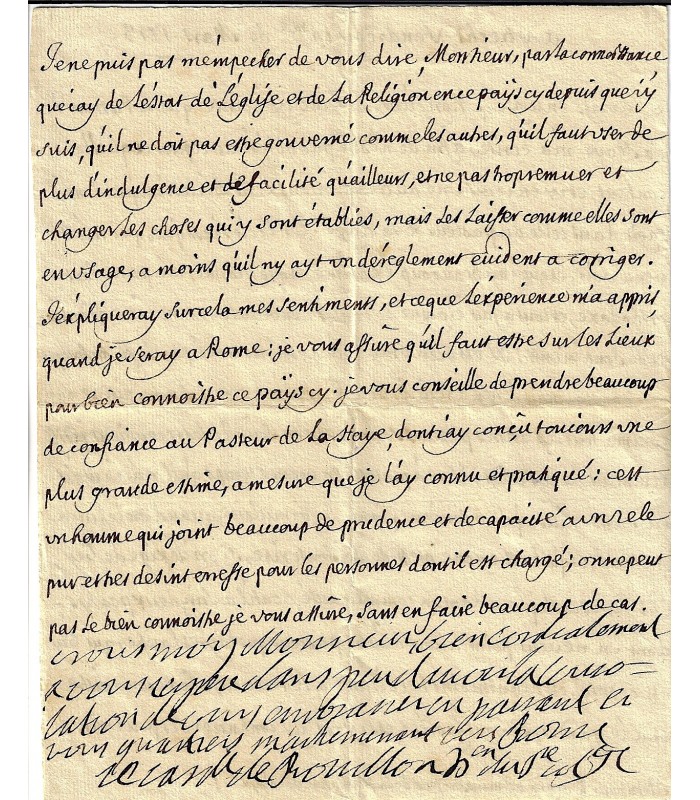 Jene puis pas m'empecher de vous dire, Monsieur, par la connoissance
que i'ay de L'estat de L'église et de La Religion en ce païs cy depuis que i'y
suis, qu'il ne doit pas estre gouverné comme les autres, qu'il faut vser de
plus d'indulgence et de facilité qu'ailleurs, et ne pas trop remuer et
changer Les choses qui y sont établies, mais Les Laisser comme elles sont
en vsage, a moins qu'il n'y ayt vn déréglement éuident a corriger.
J'expliqueray sur cela mes sentiments, et ce que L'experience m'a appris,
quand je seray a Rome: je vous assûre qu'il faut estre sur Les Lieux
pour bien connoistre ce païs cy. je vous conseille de prendre beaucoup
de confiance au Pasteur de La Haye, dont i'ay conçû toucours vne
plus grande estime, a mesure que je L'ay connu et pratiqué: c'est
vn homme qui joint beaucoup de prudence et de capacité a vn zele
pur et tres desinterresse pour les personnes dont il est chargé; on ne peut
pas Le bien connoistre je vous assûre, sans en faire beaucoup de cas.
croies moy Monsieur bien cordialement
a vous j'espere dans peu d'avoir la conso-
lation de vous embrasser en passant en
vos quartiers m'acheminant vers Rome
le card. de Bouillon